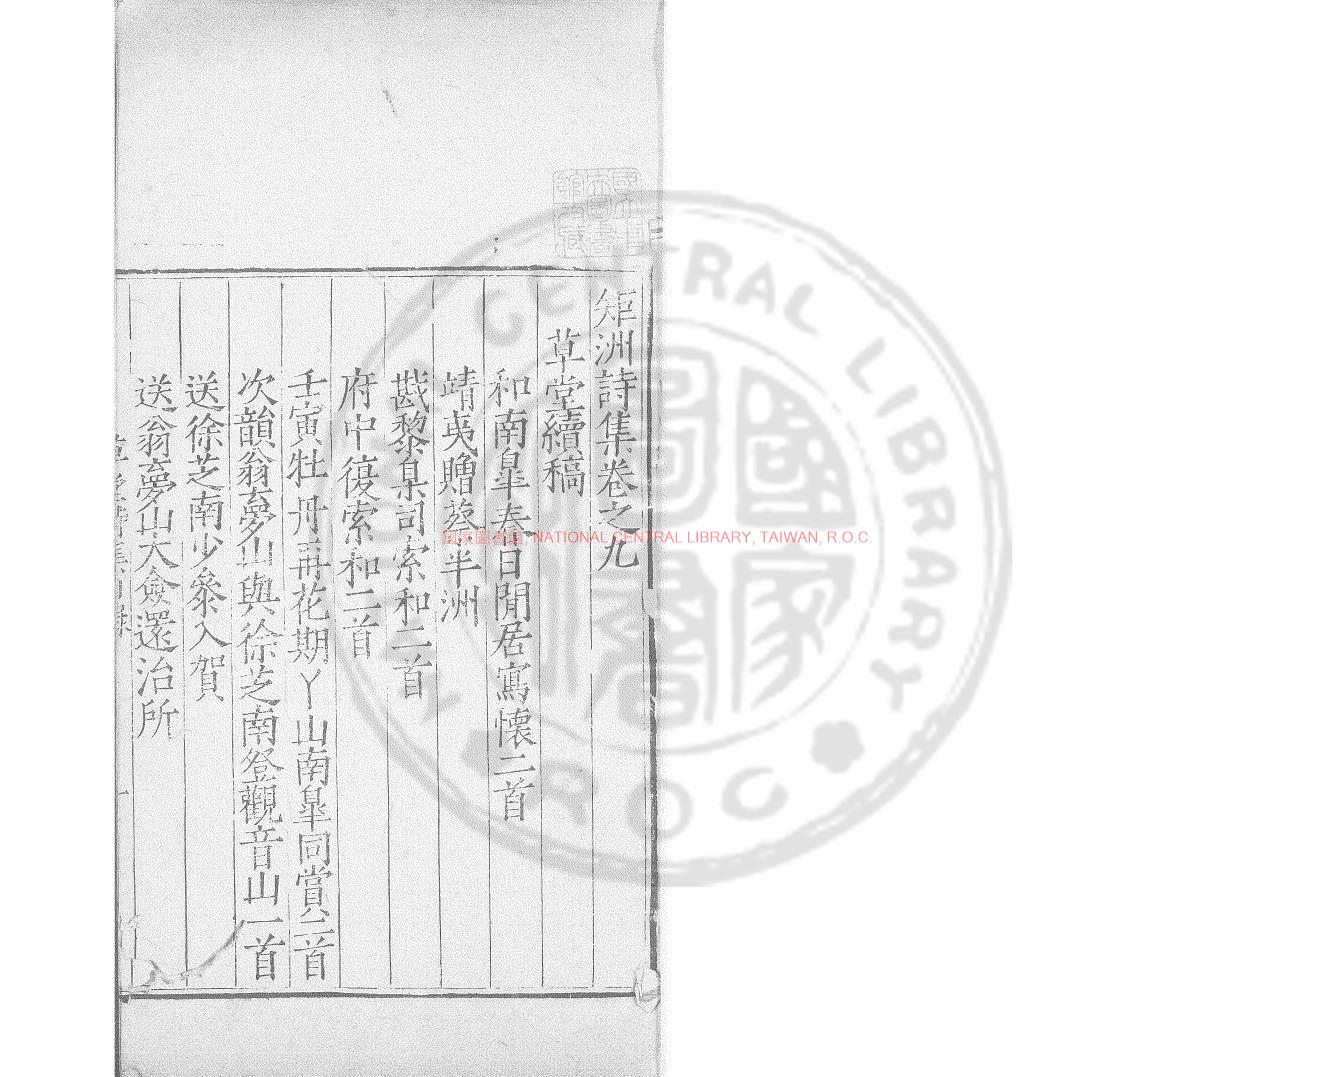 矩洲詩集卷之九
草堂續稿
和南皐春日閒居寫懷二首
靖夷贈蔡半洲
戡黎臬司索和二首
府中復索和二首
壬寅牡丹再花期丫山南皐同賞二首
次韻翁夢山與徐芝南登觀音山一首
送徐芝南少參入賀
送翁夢山大僉還治所
國家圖書館, NATIONAL CENTRAL LIBRARY, TAIWAN, R.O.C.
CENTRAL LIBRARY
R O C